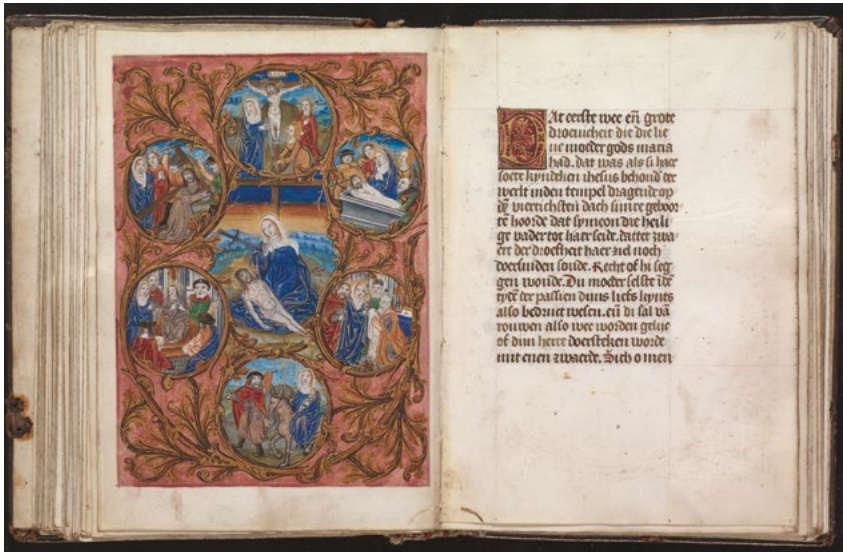 Dat eerste wee eñ grote
droevicheit die die lie
ve moeder gods maria
had. dat was als si haer
soete kyndeken ihesus behoud' der
werlt inden tempel dragende op
dē viertichsten dach sijnre geboor
tē hoorde dat symeon die heili
ge vader tot haer seide. dattet zwa
ert der droefheit haer ziel noch
doersniden soude. Recht of hi seg
gen woude. Du moeder selste ī de
tijt der passien dijns liefs kynts
also bedruct wesen. eñ di sal vā
rouwen also wee worden gelijc
of dijn herte doersteken worde
mit enen zwaerde. Sich o men